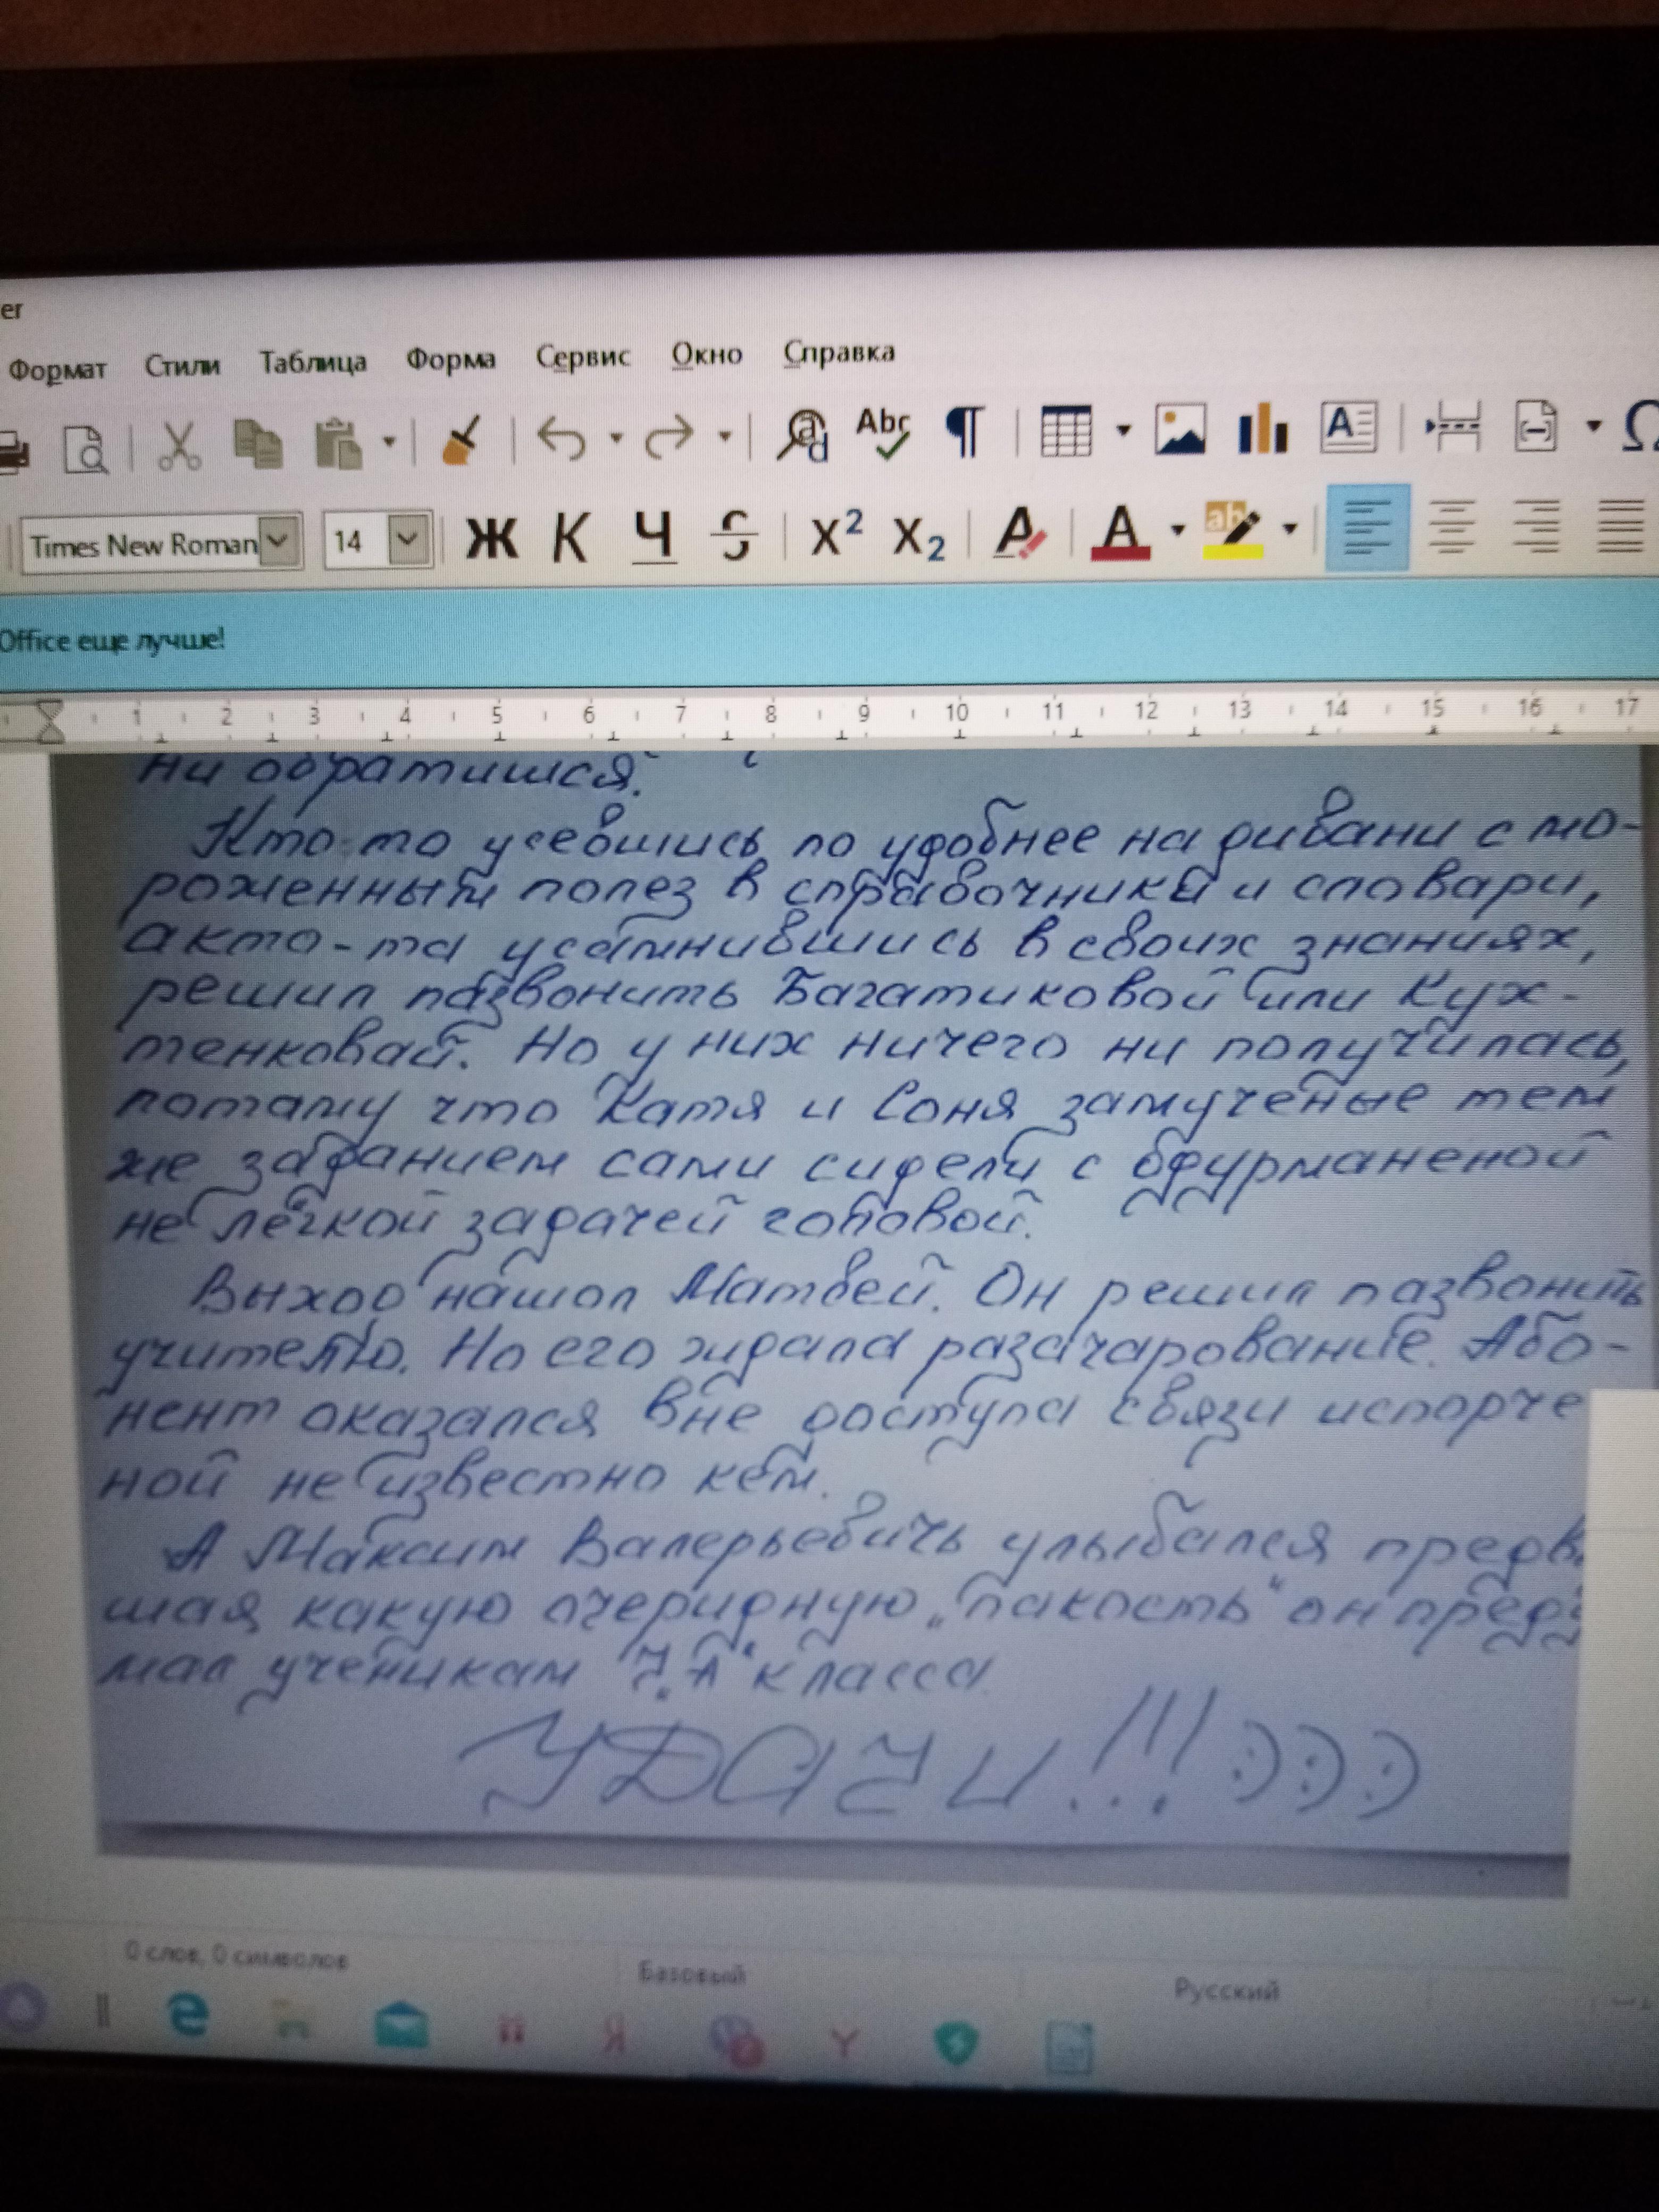 er
Формат Стили Таблица Форма Сервис Окно Справка
Abc
Times New Roman 14 Ж К Ч S X² X₂ A A ab
Office еще лучше!
1 2 3 4 5 6 7 8 9 10 11 12 13 14 15 16 17
ни обратишся.
Кто-то усевшись по удобнее на дивани с мо-
роженным полез в справочники и словари,
а кто-та усамнившись в своих знаниях,
решил пазвонить Багатиковой или Кух-
тенковай. Но у них ничего ни получилась,
потаму что Катя и Соня замученые тем
же заданием сами сидели с одурманеной
не лёгкой задачей головой.
Выход нашол Матвей. Он решил пазвонить
учителю. Но его ждала разачарование. Або-
нент оказался вне доступа связи испорче
ной не известно кем.
А Максим Валерьевичь улыбался предв
шая какую очеридную „пакость" он преду
мал ученикам 7 „А" класса.
УДАЧИ!!! :) :) :)
0 слов, 0 символов Базовый Русский
Я Y